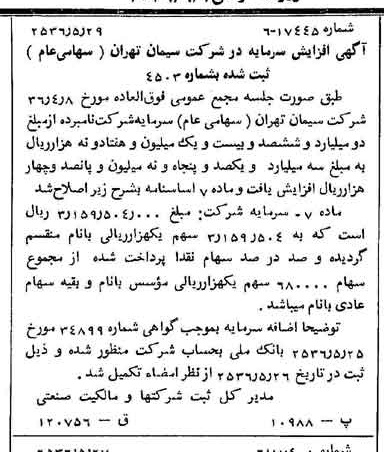 شماره ۱۷۴۴۵-۶ ۲۵۳۶٫۵٫۲۹
آگهی افزایش سرمایه در شرکت سیمان تهران ( سهامی عام )
ثبت شده بشماره ۴۵۰۳
طبق صورت جلسه مجمع عمومی فوق‌العاده مورخ ۳۶٫۴٫۸
شرکت سیمان تهران ( سهامی عام) سرمایه شرکت نامبرده از مبلغ
دو میلیارد و ششصد و بیست و یک میلیون و هفتاد و نه هزار ریال
به مبلغ سه میلیارد و یکصد و پنجاه و نه میلیون و پانصد و چهار
هزار ریال افزایش یافت و ماده ۷ اساسنامه بشرح زیر اصلاح شد
ماده ۷ ـ سرمایه شرکت: مبلغ ۳٫۱۵۹٫۵۰۴٫۰۰۰ ریال
است که به ۳٫۱۵۹٫۵۰۴ سهم یکهزار ریالی بانام منقسم
گردیده و صد در صد سهام نقدا پرداخت شده از مجموع
سهام ۶۸۰۰۰۰ سهم یکهزار ریالی مؤسس بانام و بقیه سهام
عادی بانام میباشد .
توضیحا اضافه سرمایه بموجب گواهی شماره ۳۴۸۹۹ مورخ
۲۵۳۶٫۵٫۲۵ بانک ملی بحساب شرکت منظور شده و ذیل
ثبت در تاریخ ۲۵۳۶٫۵٫۲۶ از نظر امضاء تکمیل شد .
مدیر کل ثبت شرکتها و مالکیت صنعتی
پ ـ ۱۰۹۸۸ ق ـ ۱۲۰۷۵۶